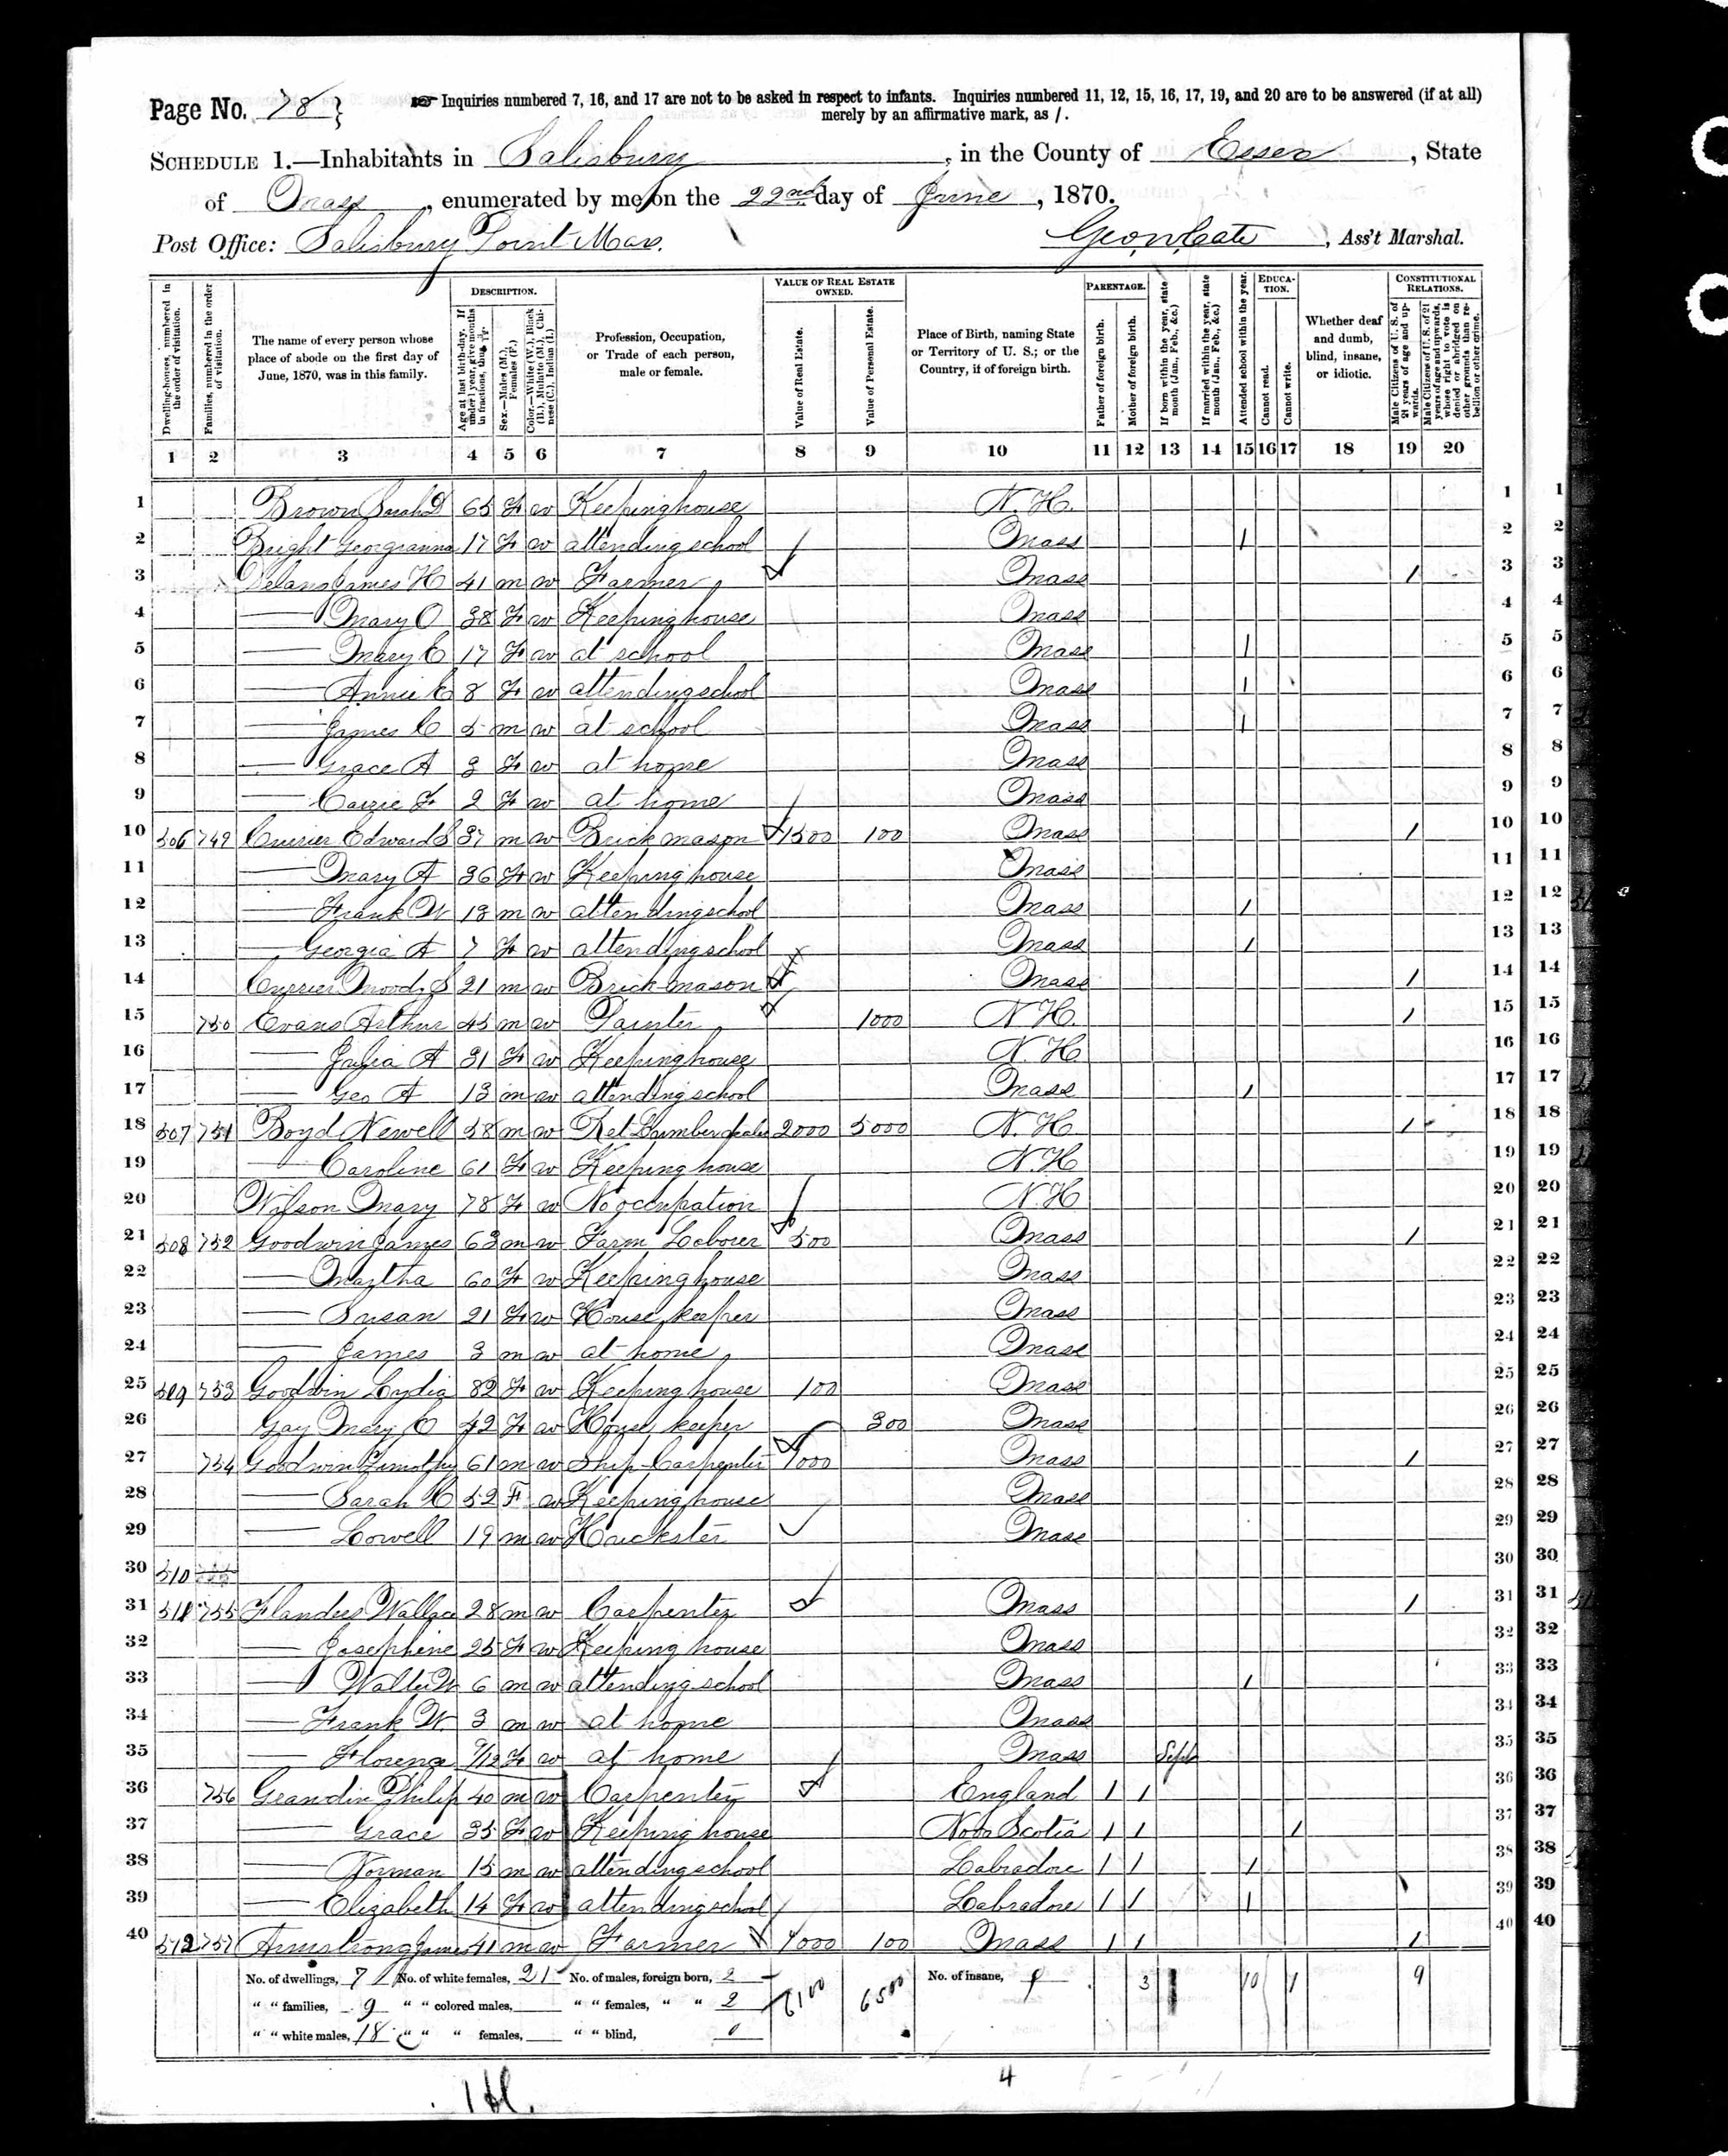 Page No. 78 } ☞ Inquiries numbered 7, 16, and 17 are not to be asked in respect to infants. Inquiries numbered 11, 12, 15, 16, 17, 19, and 20 are to be answered (if at all)
merely by an affirmative mark, as /.
SCHEDULE 1.—Inhabitants in Salisbury, in the County of Essex, State
of Mass, enumerated by me on the 22nd day of June, 1870.
Post Office: Salisbury Point Mass. Geo W Cate, Ass't Marshal.
Dwelling-houses, numbered in the order of visitation.
Families, numbered in the order of visitation.
The name of every person whose place of abode on the first day of June, 1870, was in this family.
DESCRIPTION.
Age at last birth-day. If under 1 year, give months in fractions, thus, 3/12.
Sex.—Males (M.), Females (F.)
Color.—White (W.), Black (B.), Mulatto (M.), Chinese (C.), Indian (I.)
Profession, Occupation, or Trade of each person, male or female.
VALUE OF REAL ESTATE OWNED.
Value of Real Estate.
Value of Personal Estate.
Place of Birth, naming State or Territory of U. S.; or the Country, if of foreign birth.
PARENTAGE.
Father of foreign birth.
Mother of foreign birth.
If born within the year, state month (Jan., Feb., &c.)
If married within the year, state month (Jan., Feb., &c.)
EDUCATION.
Attended school within the year.
Cannot read.
Cannot write.
Whether deaf and dumb, blind, insane, or idiotic.
CONSTITUTIONAL RELATIONS.
Male Citizens of U. S. of 21 years of age and upwards.
Male Citizens of U. S. of 21 years of age and upwards, whose right to vote is denied or abridged on other grounds than rebellion or other crime.
1 2 3 4 5 6 7 8 9 10 11 12 13 14 15 16 17 18 19 20
1 Brown Sarah D 65 F w Keeping house N. H. 1 1
2 Bright Georgianna 17 F w attending school Mass / 2 2
3 Delano James H 41 m w Farmer Mass / 3 3
4 — Mary O 38 F w Keeping house Mass 4 4
5 — Mary E 17 F w at school Mass / 5 5
6 — Annie E 8 F w attending school Mass / 6 6
7 — James C 5 m w at school Mass / 7 7
8 — Grace A 3 F w at home Mass 8 8
9 — Carrie F 2 F w at home Mass 9 9
10 506 749 Currier Edward S 37 m w Brick mason 1500 100 Mass / 10 10
11 — Mary A 36 F w Keeping house Mass 11 11
12 — Frank W 13 m w attending school Mass / 12 12
13 — Georgia A 7 F w attending school Mass / 13 13
14 Currier Moody S 21 m w Brick mason Mass / 14 14
15 750 Evans Arthur 45 m w Painter 1000 N H. / 15 15
16 — Julia A 31 F w Keeping house N. H 16 16
17 — Geo A 13 m w attending school Mass / 17 17
18 507 751 Boyd Newell 58 m w Ret Lumber dealer 2000 5000 N. H / 18 18
19 — Caroline 61 F w Keeping house N. H 19 19
20 Wilson Mary 78 F w No occupation N. H 20 20
21 508 752 Goodwin James 63 m w Farm Laborer 500 Mass / 21 21
22 — Martha 60 F w Keeping house Mass 22 22
23 — Susan 21 F w House keeper Mass 23 23
24 — James 3 m w at home Mass 24 24
25 509 753 Goodwin Lydia 82 F w Keeping house 100 Mass 25 25
26 Gay Mary E 42 F w House keeper 300 Mass 26 26
27 754 Goodwin Timothy 61 m w Ship Carpenter 1000 Mass / 27 27
28 — Sarah C 52 F w Keeping house Mass 28 28
29 — Lowell 19 m w Huckster Mass 29 29
30 510 30 30
31 511 755 Flanders Wallace 28 m w Carpenter Mass / 31 31
32 — Josephine 25 F w Keeping house Mass 32 32
33 — Walter W 6 m w attending school Mass / 33 33
34 — Frank W 3 m w at home Mass 34 34
35 — Florence 9/12 F w at home Mass Sept 35 35
36 756 Geandin Philip 40 m w Carpenter England / / 36 36
37 — Grace 35 F w Keeping house Nova Scotia / / / 37 37
38 — Norman 15 m w attending school Labradore / / / 38 38
39 — Elizabeth 14 F w attending school Labradore / / / 39 39
40 512 757 Armstrong James 41 m w Farmer 1000 100 Mass / / / 40 40
No. of dwellings, 7 No. of white females, 21 No. of males, foreign born, 2 6100 6500 No. of insane, 3 10 1 9
" " families, 9 " " colored males, " " females, " " 2
" " white males, 18 " " " females, " " blind, 0
4